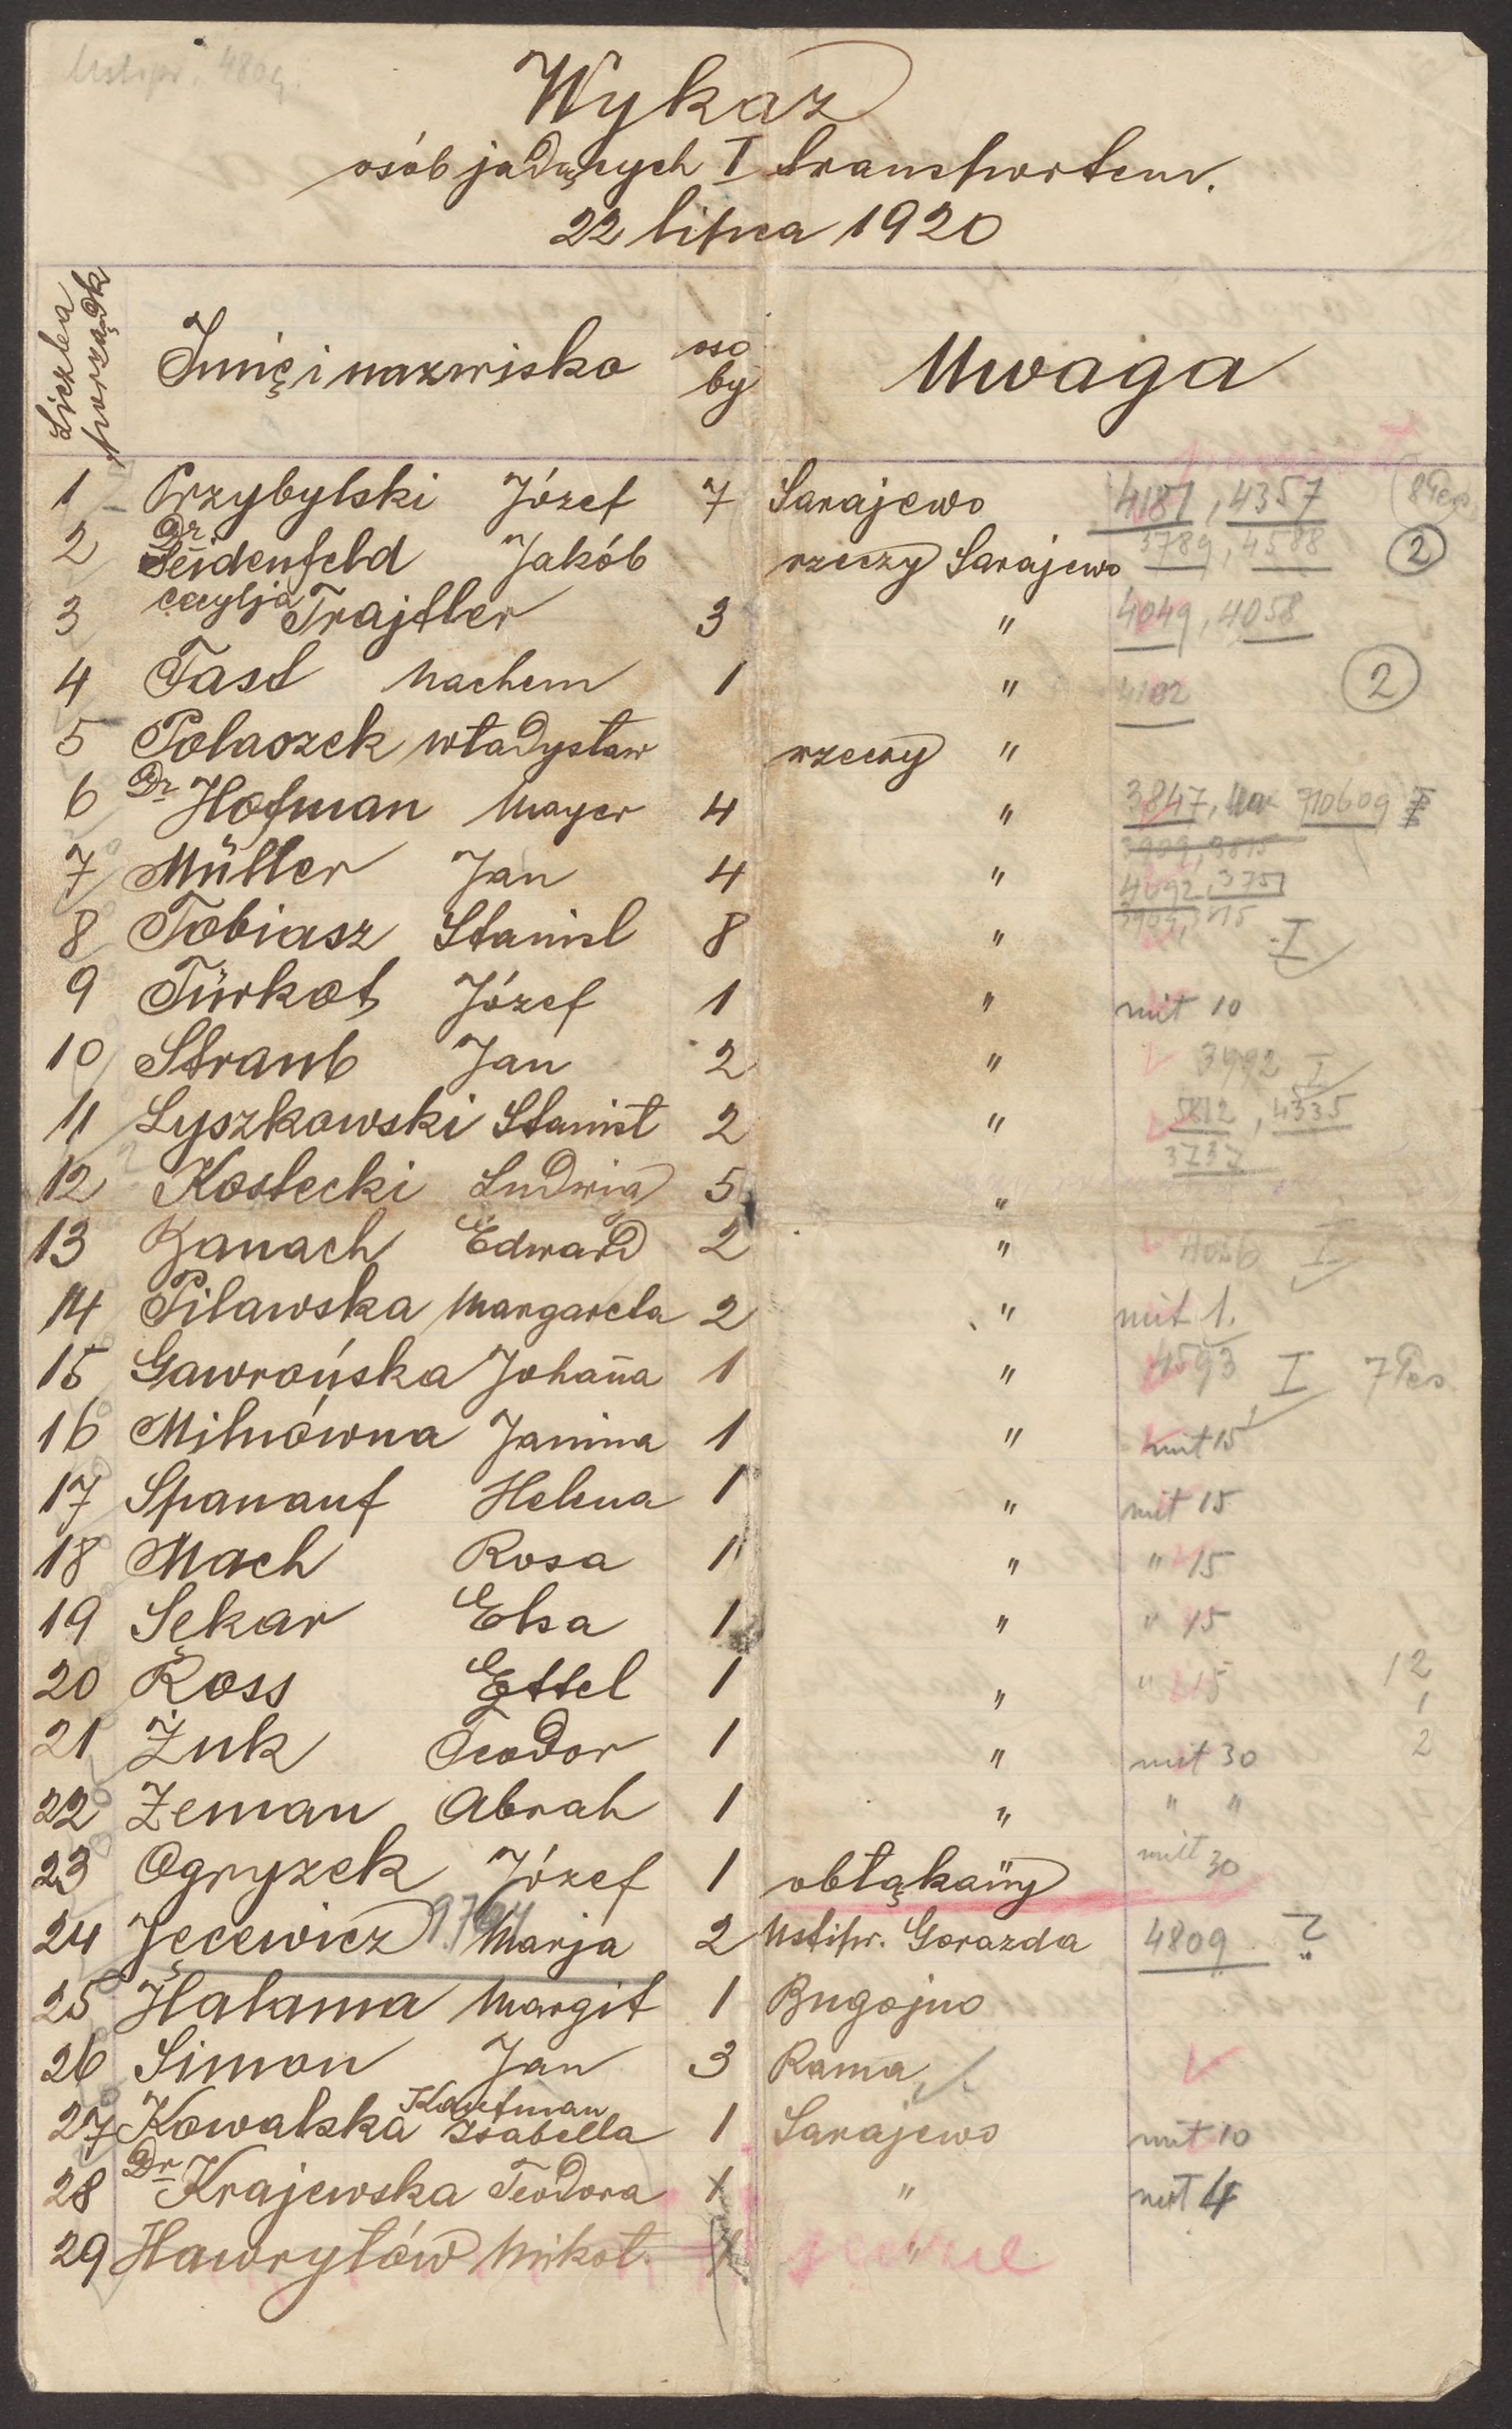 Ustipr. 4809.
Wykaz
osób jadących I transportem.
22 lipca 1920
Liczba porządk
Imię i nazwisko osoby Uwaga
1 Przybylski Józef 7 Sarajewo 4181, 4357 8 Pers.
2 Dr Seidenfeld Jakób rzeczy Sarajewo 3789, 4588 2
3 Cecylja Trajtler 3 " 4049, 4058
4 Tast Nachem 1 " 4102 2
5 Polaszek Władysław rzeczy "
6 Dr Hofman Mayer 4 " 3847, 710609
7 Müller Jan 4 " 4092, 3751
8 Tobiasz Stanisl 8 " I
9 Türkot Józef 1 " mit 10
10 Straub Jan 2 " 3992 I
11 Łyszkowski Stanisł 2 " 5812, 4335
12 Kostecki Ludwig 5 " 3737
13 Banach Edward 2 " I
14 Pilawska Margareta 2 " mit 1.
15 Gawrońska Johana 1 " 4593 I 7 Pers
16 Milnówna Janina 1 " mit 15
17 Spanauf Helena 1 " mit 15
18 Mach Rosa 1 " " 15
19 Sękar Elsa 1 " " 15
20 Ross Ettel 1 " " 15 12
21 Żuk Teodor 1 " mit 30 2
22 Zeman Abrah 1 " " "
23 Ogryzek Józef 1 obłąkany mit 30
24 Jęcewicz Marja 2 Ustipr. Gorazda 4809 ?
25 Halama Margit 1 Bugojno
26 Simon Jan 3 Rama
27 Kowalska Kaufman Isabella 1 Sarajewo mit 10
28 Dr Krajewska Teodora 1 " mit 4
29 Hawryłów Mikoł. "